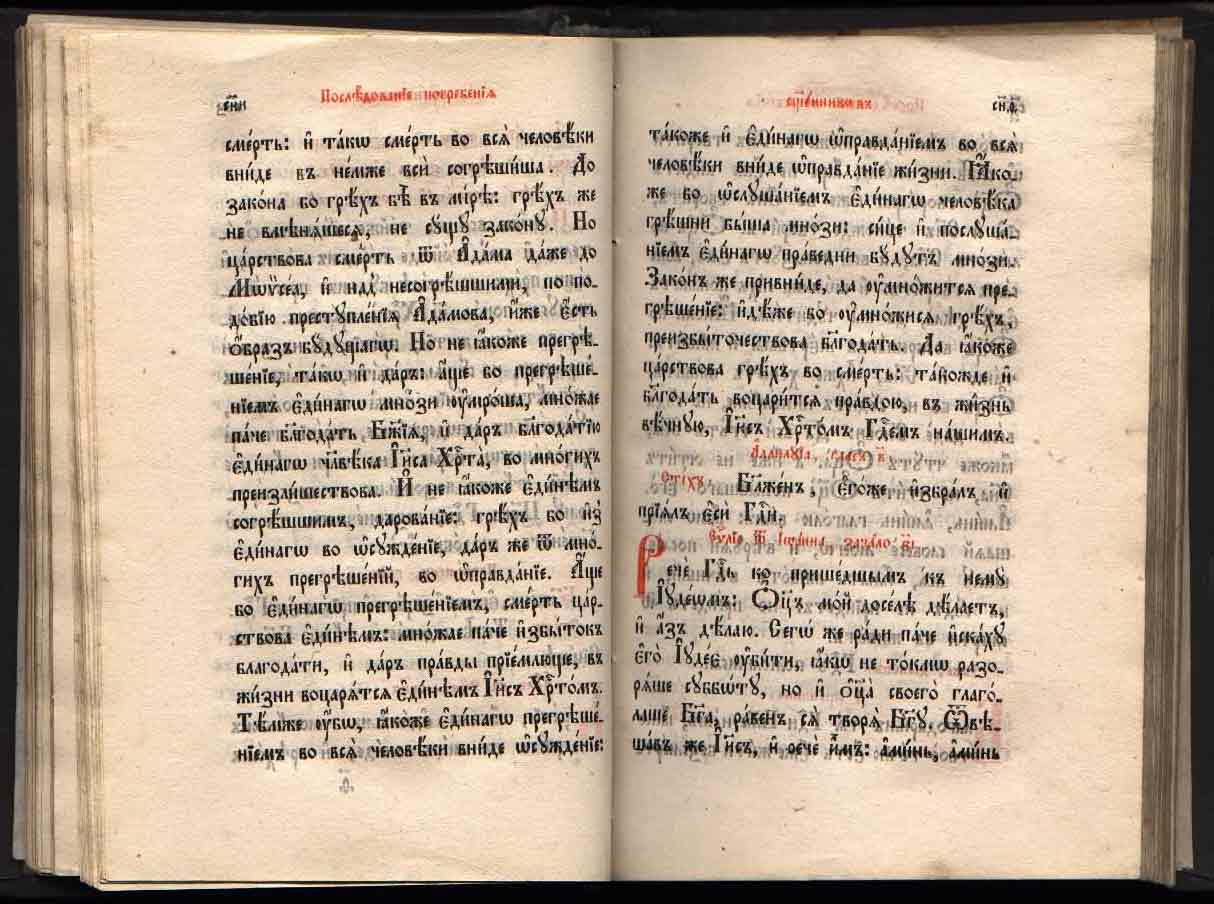 сни
Послѣ́дованїе погребенїѧ
сме́рть: и҆ та́кѡ сме́рть во всѧ̀ человѣ́ки
вни́де въ не́мже всѝ согрѣши́ша. До
зако́на бо грѣ́хъ бѣ̀ въ мі́рѣ: грѣ́хъ же
не вмѣнѧ́шесѧ, не су́щу зако́ну. Но
ца́рствова сме́рть ѿ А҆да́ма да́же до
Мѡѷсе́а, и҆ над̾ несогрѣ́шшими, по по-
до́бїю преступле́нїѧ А҆да́мова, и҆́же є҆́сть
ѻ҆́бразъ бу́дущагѡ. Но не ꙗ҆́коже прегрѣ-
ше́нїе, та́кѡ и҆ да́ръ: а҆́ще бо прегрѣше́-
нїемъ є҆ди́нагѡ мно́зи ᲂу҆мро́ша, мно́жае
па́че блгⷣа́ть Бж҃їѧ, и҆ да́ръ блгⷣа́тїю
є҆ди́нагѡ чл҃вѣ́ка І҆и҃са Хрⷭ҇та̀, во мно́гихъ
преизли́шествова. И҆ не ꙗ҆́коже є҆ди́нѣмъ
согрѣ́шшимъ, дарова́нїе: грѣ́хъ бо и҆з̾
є҆ди́нагѡ во ѡ҆сужде́нїе, да́ръ же ѿ мно́-
гихъ прегрѣше́нїй, во ѡ҆правда́нїе. А҆́ще
бо є҆ди́нагѡ прегрѣше́нїемъ, сме́рть ца́р-
ствова є҆ди́нѣмъ: мно́жае па́че и҆збы́токъ
благода́ти, и҆ да́ръ пра́вды прїе́млюще, въ
жи́зни воцарѧ́тсѧ є҆ди́нѣмъ І҆и҃съ Хрⷭ҇то́мъ.
Тѣ́мже ᲂу҆̀бѡ, ꙗ҆́коже є҆ди́нагѡ прегрѣше́-
нїемъ во всѧ̀ человѣ́ки вни́де ѡ҆сужде́нїе:
сщ҃е́нникѡвъ
снѳ
та́коже и҆ є҆ди́нагѡ ѡ҆правда́нїемъ во всѧ̀
человѣ́ки вни́де ѡ҆правда́нїе жи́зни. Ꙗ҆́ко-
же бо ѡ҆слуша́нїемъ є҆ди́нагѡ человѣ́ка
грѣ́шни бы́ша мно́зи: си́це и҆ послуша́-
нїемъ є҆ди́нагѡ пра́ведни бу́дутъ мно́зи.
Зако́нъ же привни́де, да ᲂу҆мно́житсѧ пре-
грѣше́нїе: и҆дѣ́же бо ᲂу҆мно́жисѧ грѣ́хъ,
преизбы́точествова блгⷣа́ть. Да ꙗ҆́коже
ца́рствова грѣ́хъ во сме́рть: та́йожде и҆
блгⷣа́ть воцари́тсѧ пра́вдою, въ жи́знь
вѣ́чную, І҆и҃съ Хрⷭ҇то́мъ Гдⷭ҇емъ на́шимъ.
А҆ллилꙋїа, гласъ в҃
Стїхъ. Бл҃же́нъ, є҆го́же и҆збра́лъ и҆
прїѧ́лъ є҆сѝ Гдⷭ҇и.
Є҆ѵⷢ҇лїе ѿ І҆ѡа́нна, зача́ло є҃і
Речѐ Гдⷭ҇ь ко прише́дшымъ къ нему̀
І҆уде́ѡмъ: Ѻ҆ц҃ъ мо́й досе́лѣ дѣ́лаетъ,
и҆ а҆́зъ дѣ́лаю. Сегѡ́ же ра́ди па́че и҆ска́ху
є҆го̀ І҆уде́є ᲂу҆би́ти, ꙗ҆́кѡ не то́кмѡ разо-
рѧ́ше суббѡ́ту, но и҆ ѻ҆ц҃а̀ своего̀ глаго́-
лаше Бг҃а, ра́венъ сѧ̀ творѧ̀ Бг҃у. Ѿвѣ-
ща́въ же І҆и҃съ, и҆ речѐ и҆́мъ: а҆ми́нь, а҆ми́нь